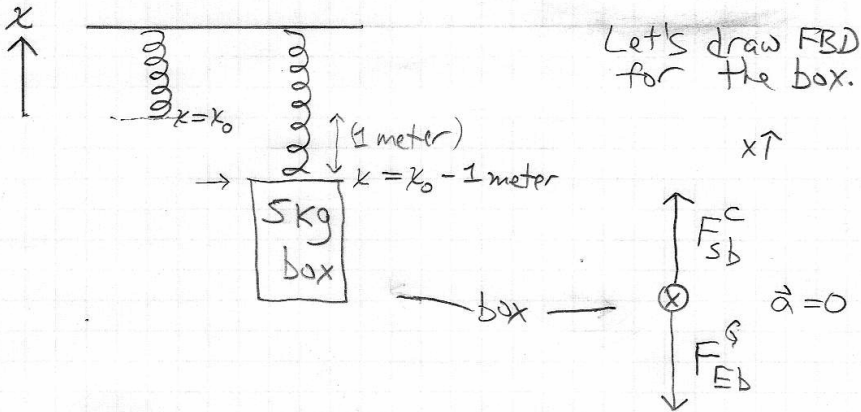 x
Let's draw FBD
for the box.
x=x₀
(1 meter)
x↑
→ x = x₀ - 1 meter
5kg
box
F_sb^C
box
ⓧ a⃗ =0
F_Eb^G